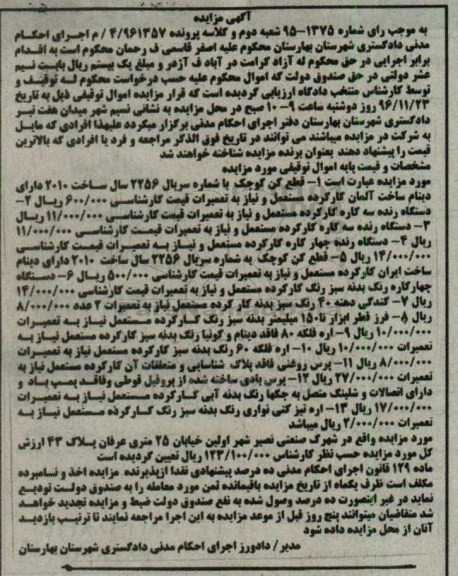 آگهی مزایده
به موجب رای شماره ۱۳۷۵-۹۵ شعبه دوم و کلاسه پرونده ۴/۹۶۱۳۵۷ / م اجرای احکام
مدنی دادگستری شهرستان بهارستان محکوم علیه اصغر قاسمی ف رحمان محکوم است به اقدام
برابر اجرایی در حق محکوم له آزاد کرامت در آباد ف آژدر و مبلغ یک بیستم ریال بابت نیم
عشر دولتی در حق صندوق دولت که اموال محکوم علیه حسب درخواست محکوم له توقیف و
توسط کارشناس منتخب دادگاه ارزیابی گردیده است که قرار مزایده اموال توقیفی ذیل به تاریخ
۹۶/۱۱/۲۳ روز دوشنبه ساعت ۹-۱۰ صبح در محل مزایده به نشانی نسیم شهر میدان هفت تیر
دادگستری شهرستان بهارستان دفتر اجرای احکام مدنی برگزار میگردد علیهذا افرادی که مایل
به شرکت در مزایده میباشند می توانند در تاریخ فوق الذکر مراجعه و فرد یا افرادی که بالاترین
قیمت را پیشنهاد دهند بعنوان برنده مزایده شناخته خواهند شد
مشخصات و قیمت پایه اموال توقیفی مورد مزایده
مورد مزایده عبارت است ۱- قطع کن کوچک با شماره سریال ۲۲۵۶ سال ساخت ۲۰۱۰ دارای
دینام ساخت آلمان کارکرده مستعمل و نیاز به تعمیرات قیمت کارشناسی ۶۰۰/۰۰۰ ریال ۲-
دستگاه رنده سه کاره کارکرده مستعمل و نیاز به تعمیرات قیمت کارشناسی ۱۱/۰۰۰/۰۰۰ ریال
۳- دستگاه رنده سه کاره کارکرده مستعمل و نیاز به تعمیرات قیمت کارشناسی ۱۱/۰۰۰/۰۰۰
ریال ۴- دستگاه رنده چهار کاره کارکرده مستعمل و نیاز به تعمیرات قیمت کارشناسی
۱۴/۰۰۰/۰۰۰ ریال ۵- قطع کن کوچک به شماره سریال ۲۲۵۶ سال ساخت ۲۰۱۰ دارای دینام
ساخت ایران کارکرده مستعمل و نیاز به تعمیرات قیمت کارشناسی ۵۰۰/۰۰۰ ریال ۶- دستگاه
چهارکاره رنگ بدنه سبز رنگ کارکرده مستعمل و نیاز به تعمیرات قیمت کارشناسی ۱۴/۰۰۰/۰۰۰
ریال ۷- گندگی دهنه ۴۰ رنگ سبز بدنه کار کرده مستعمل نیاز به تعمیرات ۲ عدد ۸/۰۰۰/۰۰۰
ریال ۸- فرز قطر ابزار تا ۱۵۰ میلیمتر بدنه سبز رنگ کارکرده مستعمل نیاز به تعمیرات
۱۰/۰۰۰/۰۰۰ ریال ۹- اره فلکه ۸۰ فاقد دینام و گونیا رنگ بدنه سبز کارکرده مستعمل نیاز به
تعمیرات ۱۰/۰۰۰/۰۰۰ ریال ۱۰- اره فلکه ۶۰ رنگ بدنه سبز کارکرده مستعمل نیاز به تعمیرات
۸/۰۰۰/۰۰۰ ریال ۱۱- پرس روغنی فاقد پلاک شناسایی و متعلقات آن کارکرده مستعمل نیاز به
تعمیرات ۲۷/۰۰۰/۰۰۰ ریال ۱۲- پرس بادی ساخته شده از پروفیل قوطی وفاقد پمپ باد و
دارای اتصالات و شلینگ متصل به جکها رنگ بدنه آبی کارکرده مستعمل نیاز به تعمیرات
۱۷/۰۰۰/۰۰۰ ریال ۱۳- اره تیز کنی نواری رنگ بدنه سبز رنگ کارکرده مستعمل نیاز به
تعمیرات ۲/۰۰۰/۰۰۰ ریال میباشد
مورد مزایده واقع در شهرک صنعتی نصیر شهر اولین خیابان ۲۵ متری عرفان پلاک ۴۳ ارزش
کل مورد مزایده حسب نظر کارشناس ۱۲۳/۱۰۰/۰۰۰ ریال تعیین گردیده است
ماده ۱۲۹ قانون اجرای احکام مدنی ده درصد پیشنهادی نقدا ازپذیرنده مزایده اخذ و نامبرده
مکلف است ظرف یکماه از تاریخ مزایده باقیمانده ثمن مورد معامله را به صندوق دولت تودیع
نماید در غیر اینصورت ده درصد وصول شده به نفع صندوق دولت ضبط و مزایده تجدید خواهد
شد متقاضیان میتوانند پنج روز قبل از موعد مزایده به این اجرا مراجعه نمایند تا ترتیب بازدید
آنان از محل مزایده داده شود
مدیر / دادورز اجرای احکام مدنی دادگستری شهرستان بهارستان